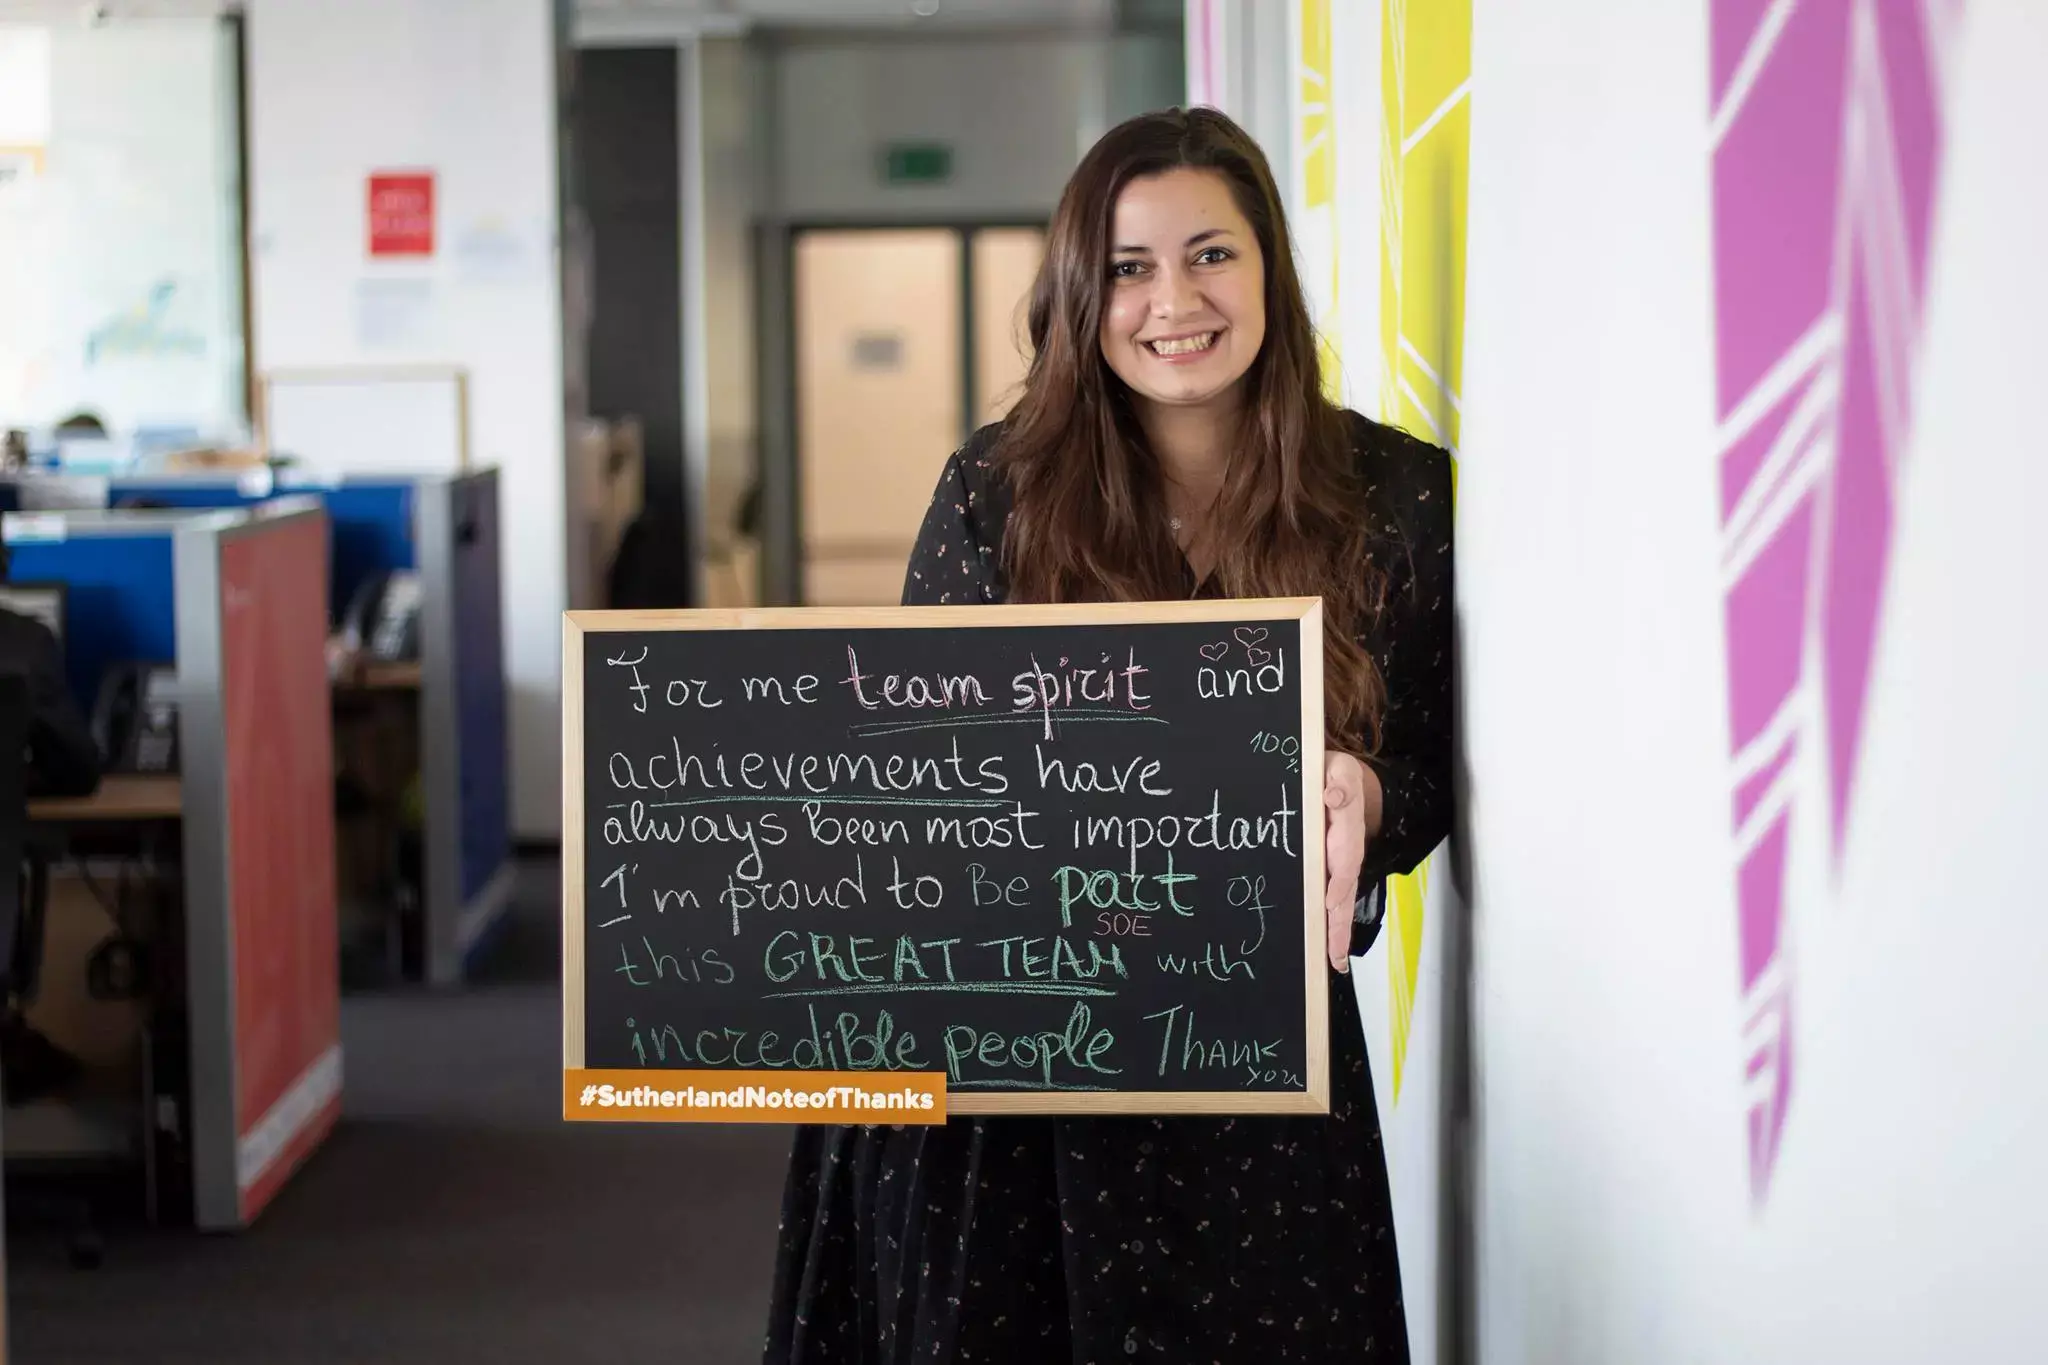 For me team spirit and
100%
achievements have
always been most important
I'm proud to Be part of
SOE
this GREAT TEAM with
incredible people Thank
you
#SutherlandNoteofThanks